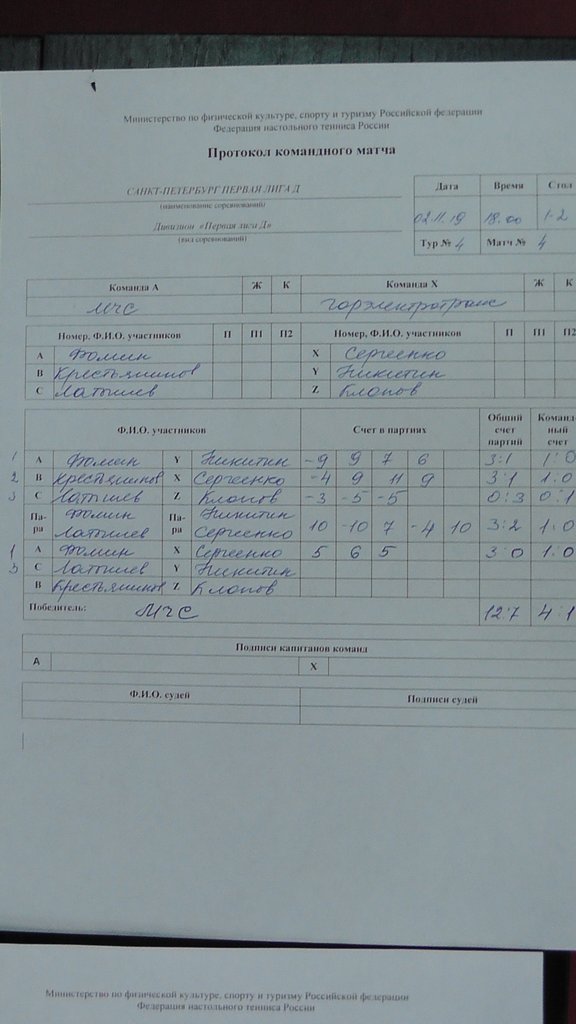 Министерство по физической культуре, спорту и туризму Российской федерации
Федерация настольного тенниса России
Протокол командного матча
САНКТ-ПЕТЕРБУРГ ПЕРВАЯ ЛИГА Д
(наименование соревнований)
Дивизион «Первая лига Д»
(вид соревнований)
Дата Время Стол
02.11.19 18.00 1-2
Тур № 4 Матч № 4
Команда А Ж К Команда Х Ж К
МЧС Горэлектротранс
Номер, Ф.И.О. участников П П1 П2 Номер, Ф.И.О. участников П П1 П2
А Фомин X Сергеенко
В Крестьянинов Y Никитин
С Латышев Z Клопов
Ф.И.О. участников Счет в партиях Общий счет партий Команд- ный счет
1 А Фомин Y Никитин -9 9 7 6 3:1 1:0
2 В Крестьянинов X Сергеенко -4 9 11 9 3:1 1:0
3 С Латышев Z Клопов -3 -5 -5 0:3 0:1
Па- ра Фомин Латышев Па- ра Никитин Сергеенко 10 -10 7 -4 10 3:2 1:0
1 А Фомин X Сергеенко 5 6 5 3:0 1:0
3 С Латышев Y Никитин
В Крестьянинов Z Клопов
Победитель: МЧС 12:7 4:1
Подписи капитанов команд
А X
Ф.И.О. судей Подписи судей
Министерство по физической культуре, спорту и туризму Российской федерации
Федерация настольного тенниса России